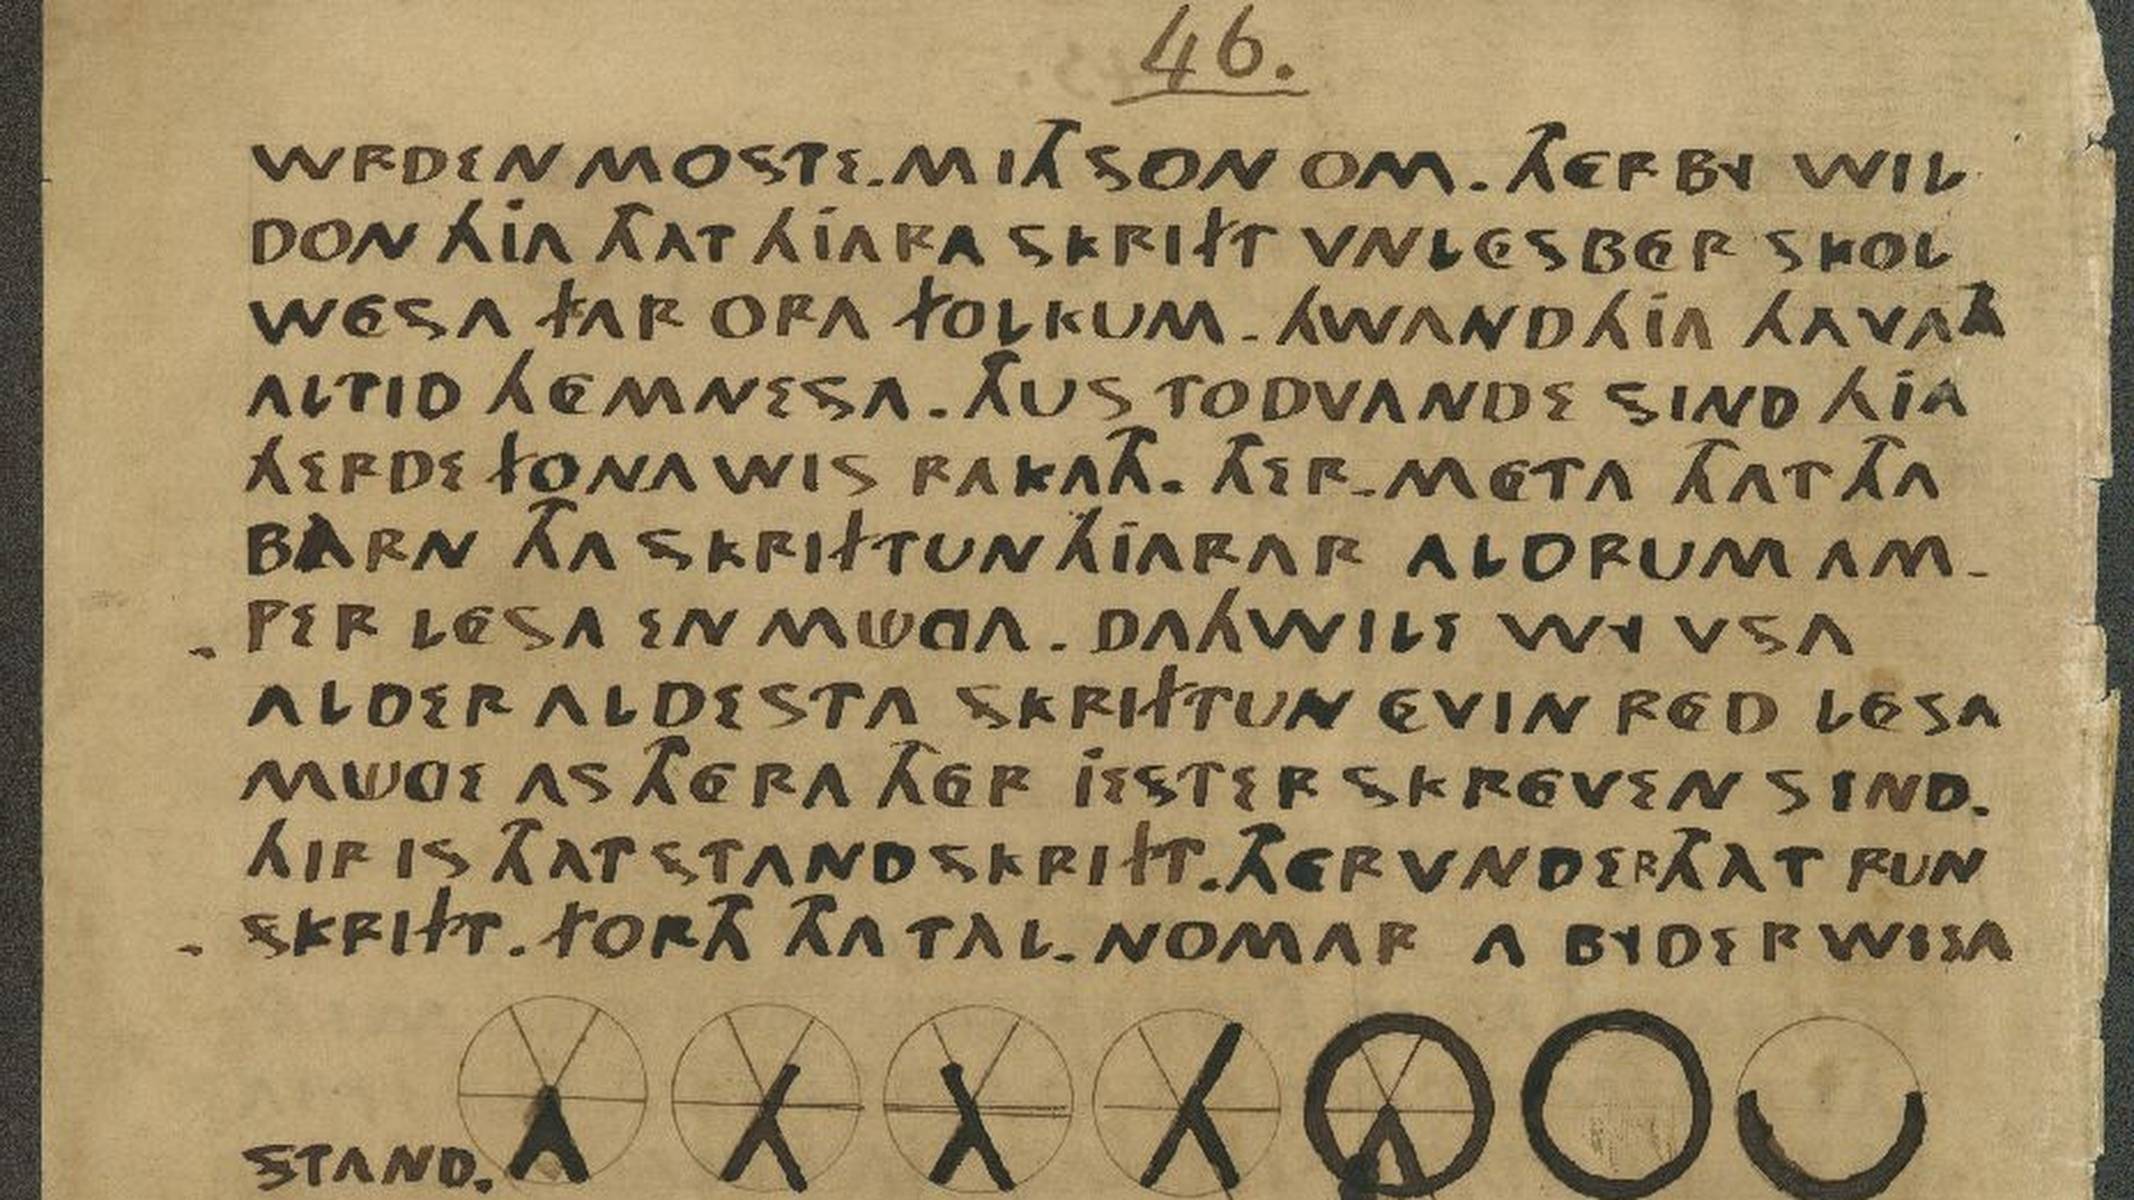 46.
WRDEN MOSTE. MITH SON OM. THÉR BY WIL
DON HIA THAT HIARA SKRIFT VNLÉSBÉR SKOL
WÉSA FAR ORA FOLKUM. HWAND HIA HAVATH
ALTID HÉMNESA. THUS TODVANDE SIND HIA
HERDE FON A WIS RAKATH. THER-MÉTA THAT THA
BARN THA SKRIFTUN HIARAR ALDRUM AM-
PER LÉSA EN MÜGA. DAHWILE WY VSA
ALDER ALDESTA SKRIFTUN ÉVIN RÉD LÉSA
MÜGE AS THÉRA THÉR IESTER SKRÉVEN SIND.
HIR IS THAT STAND SKRIFT. THÉR VNDER THAT RUN
SKRIFT. FORTH THA TAL-NOMAR A BYDER WISA
STAND.